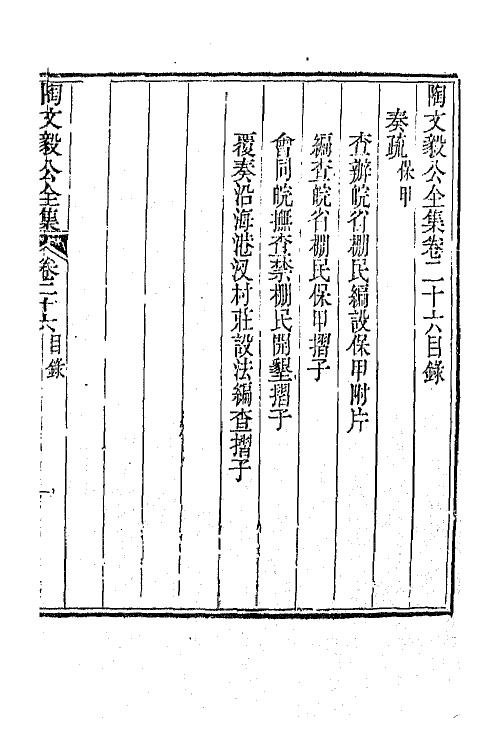 陶文毅公全集卷二十六目錄
奏疏保甲
查辦皖省棚民編設保甲附片
編查皖省棚民保甲摺子
會同皖撫查禁棚民開墾摺子
覆奏沿海港汊村莊設法編查摺子
陶文毅公全集 卷二十六目錄 一